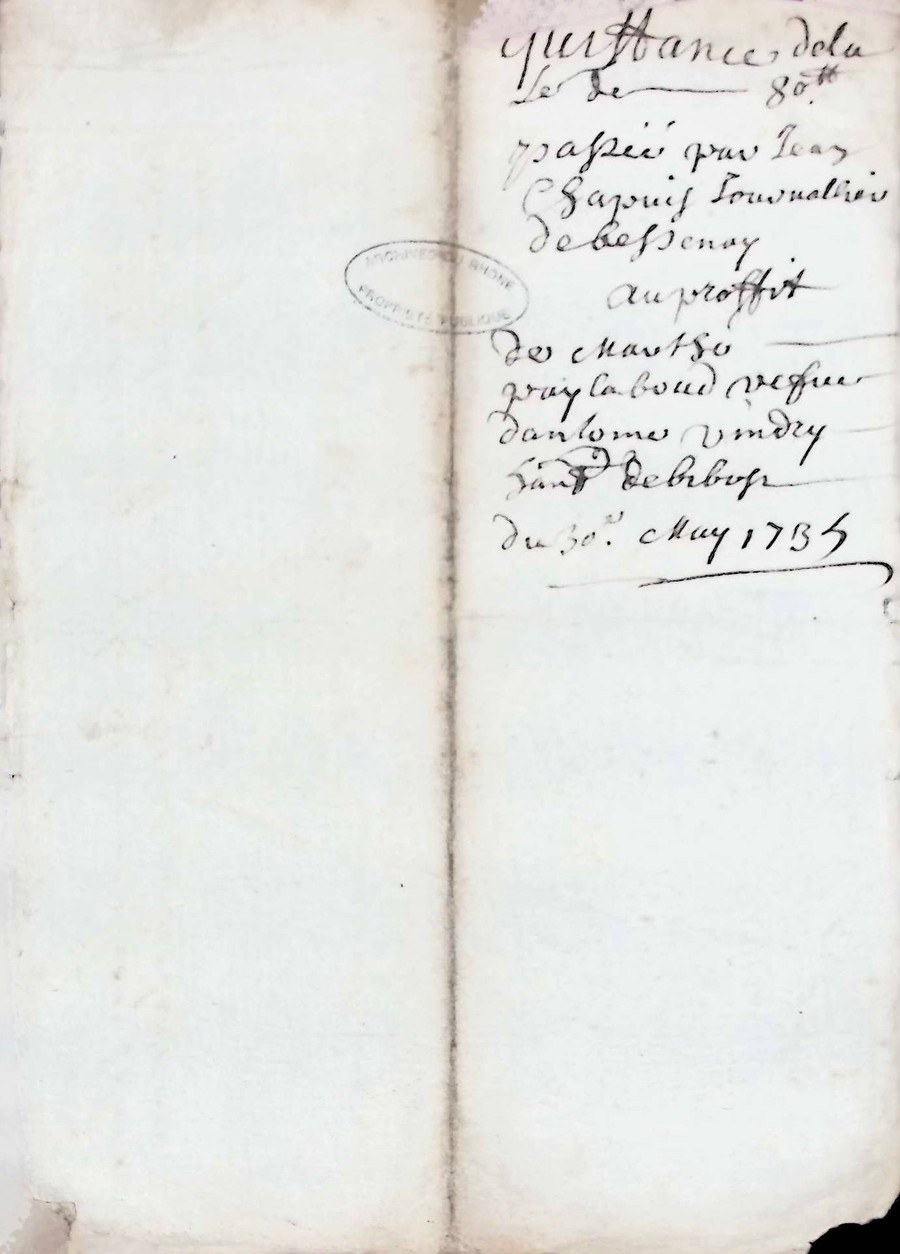 quittance, dela
Le de 80.tt
passéé par Jean
Chapuis Journallier
de bessenay
au proffit
de Marthe
paylaboud vefue
dantome vindry
hant de bibost
du 30.e May 1735
ARCHIVES DU RHONE
PROPRIÉTÉ PUBLIQUE